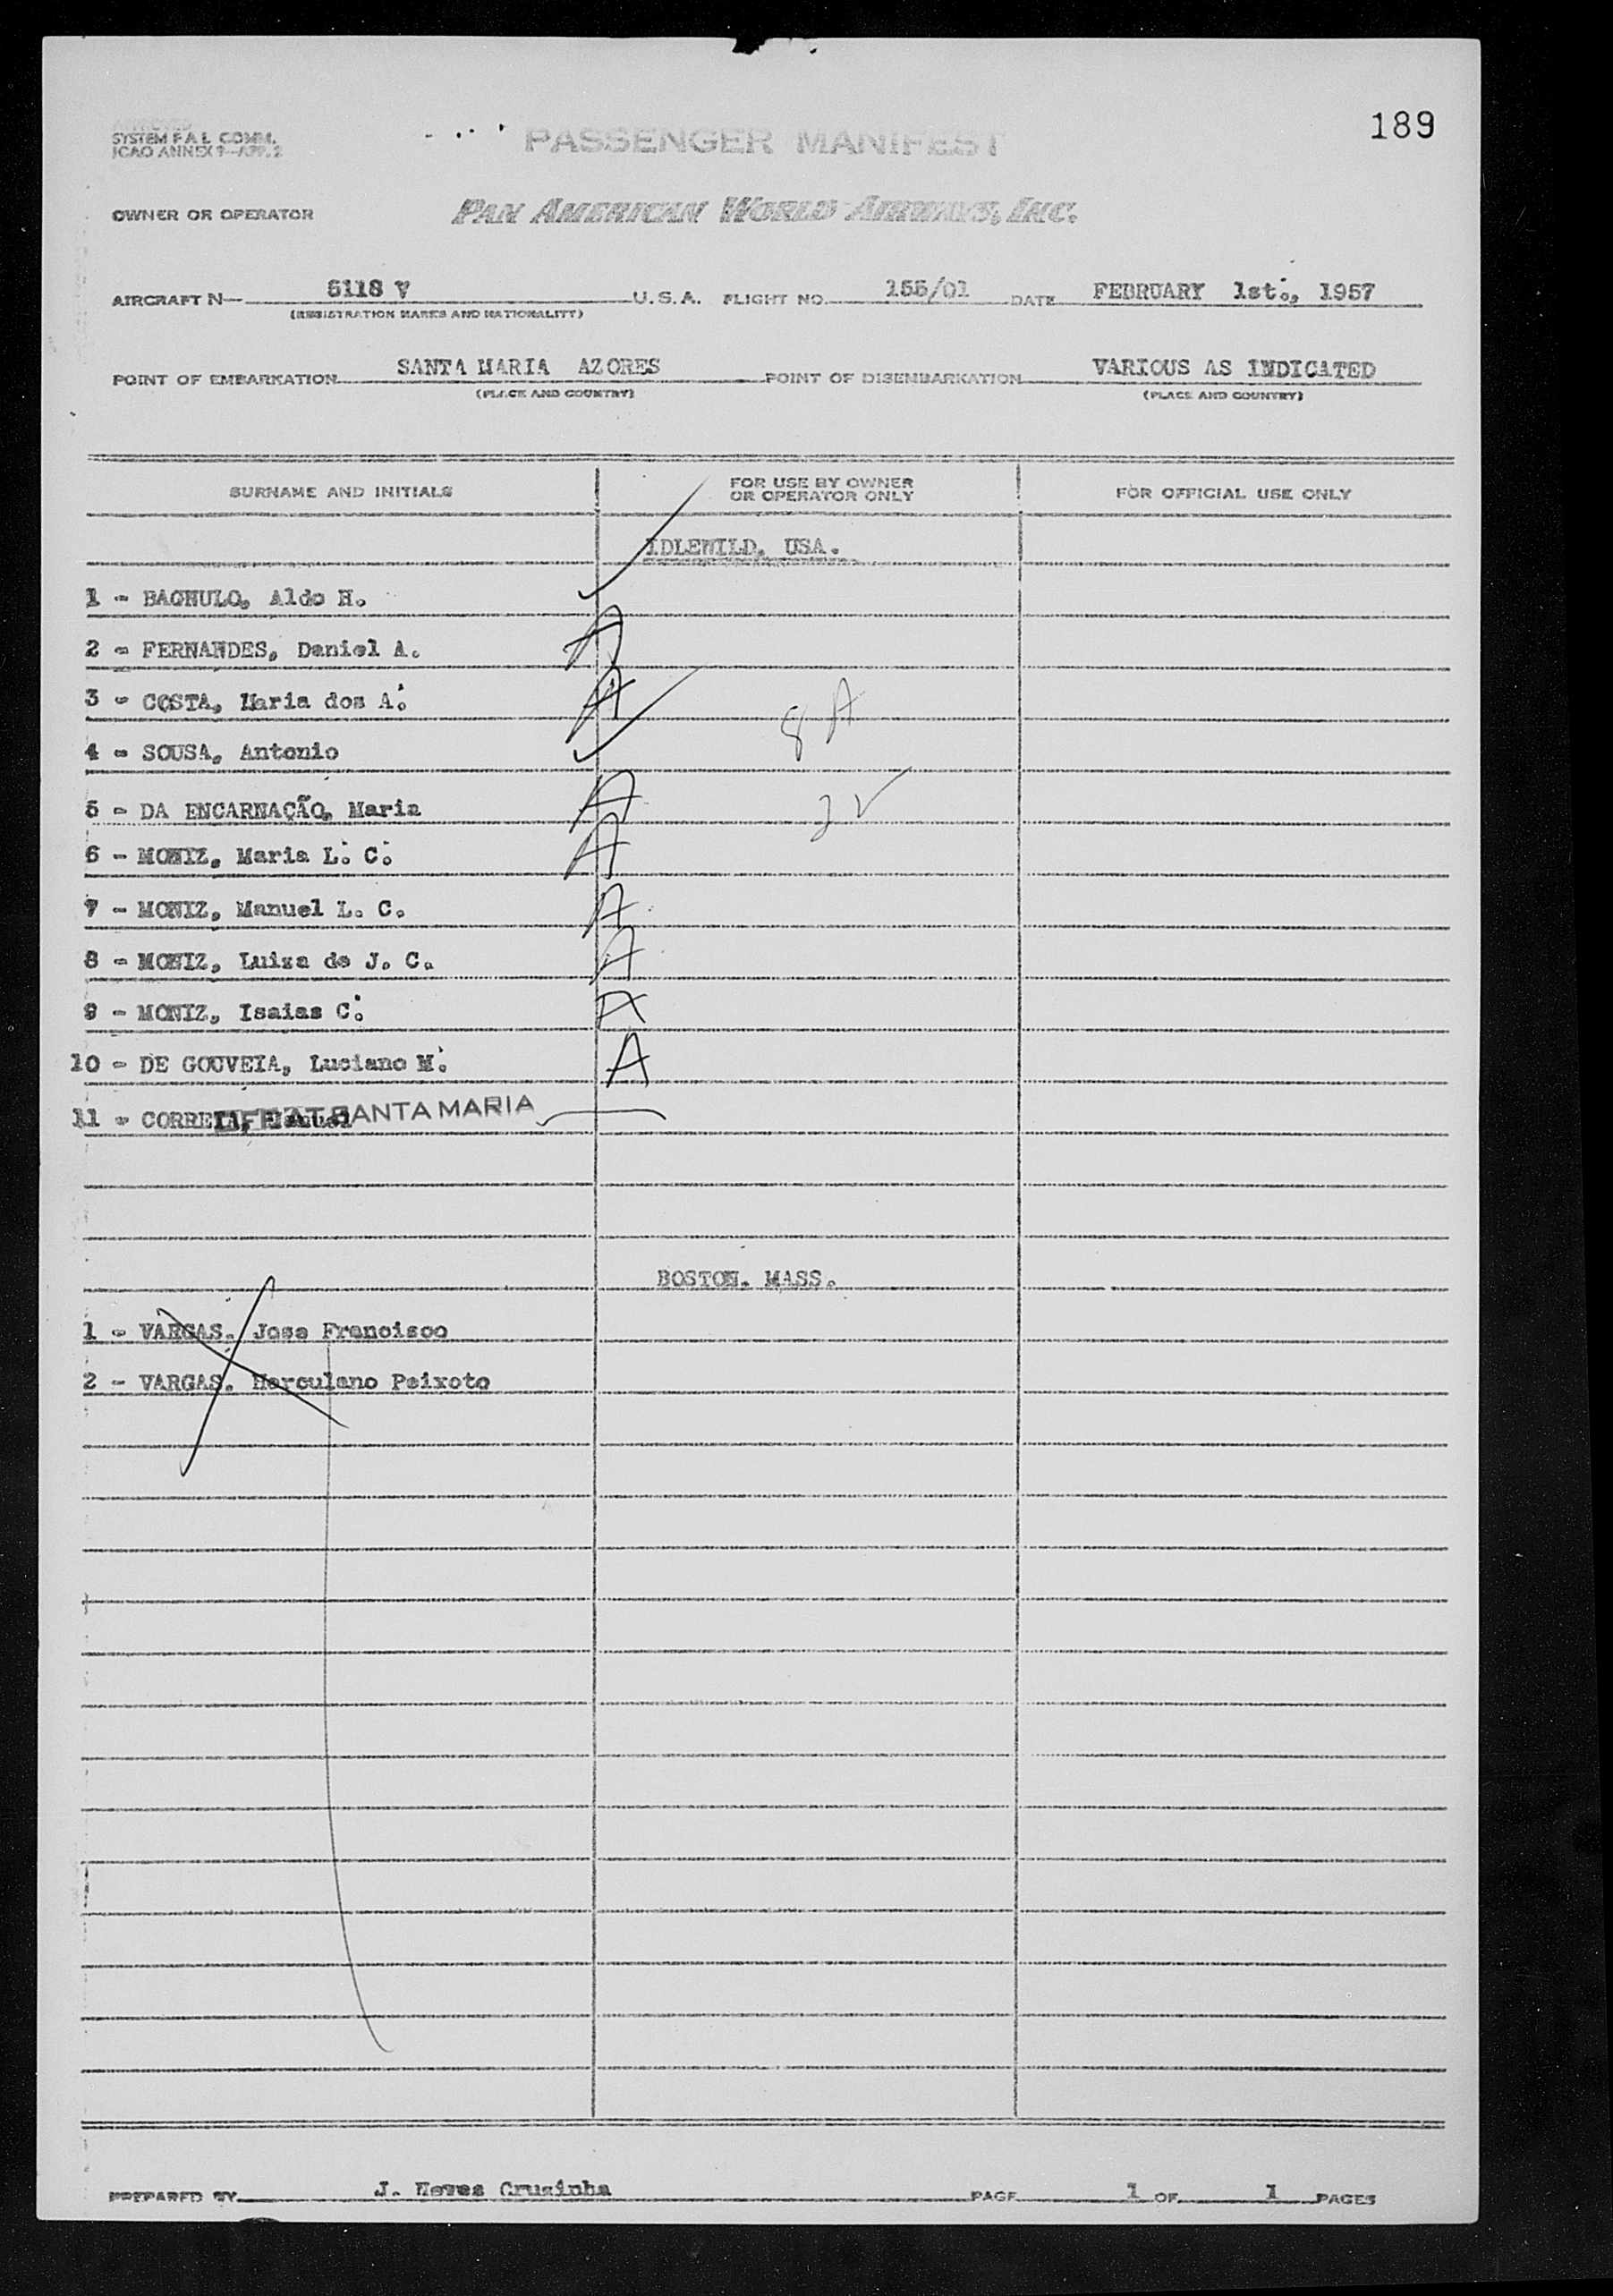 189
SYSTEM F A L COMM.
ICAO ANNEX 9—APP. 2
PASSENGER MANIFEST
OWNER OR OPERATOR PAN AMERICAN WORLD AIRWAYS, INC.
AIRCRAFT N— 5118 V U.S.A. FLIGHT NO. 155/01 DATE FEBRUARY 1st., 1957
(REGISTRATION MARKS AND NATIONALITY)
POINT OF EMBARKATION SANTA MARIA AZORES POINT OF DISEMBARKATION VARIOUS AS INDICATED
(PLACE AND COUNTRY) (PLACE AND COUNTRY)
SURNAME AND INITIALS FOR USE BY OWNER OR OPERATOR ONLY FOR OFFICIAL USE ONLY
IDLEWILD, USA.
1 - BAGNULO, Aldo H.
2 - FERNANDES, Daniel A. A
3 - COSTA, Maria dos A. A
8 A
4 - SOUSA, Antonio
5 - DA ENCARNAÇÃO, Maria A
2 ✓
6 - MONIZ, Maria L. C. A
7 - MONIZ, Manuel L. C. A
8 - MONIZ, Luiza de J. C. A
9 - MONIZ, Isaias C. A
10 - DE GOUVEIA, Luciano M. A
11 - CORREIA, Manuel SANTA MARIA
BOSTON. MASS.
1 - VARGAS. Jose Francisco
2 - VARGAS. Herculano Peixoto
PREPARED BY J. Neves Crusinha PAGE 1 OF 1 PAGES